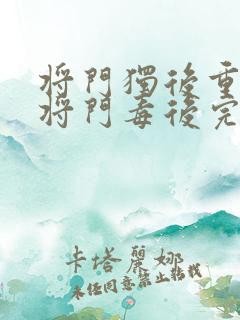 将門獨後重
将門毒後完
卡塔麗娜
未经同意禁止转载